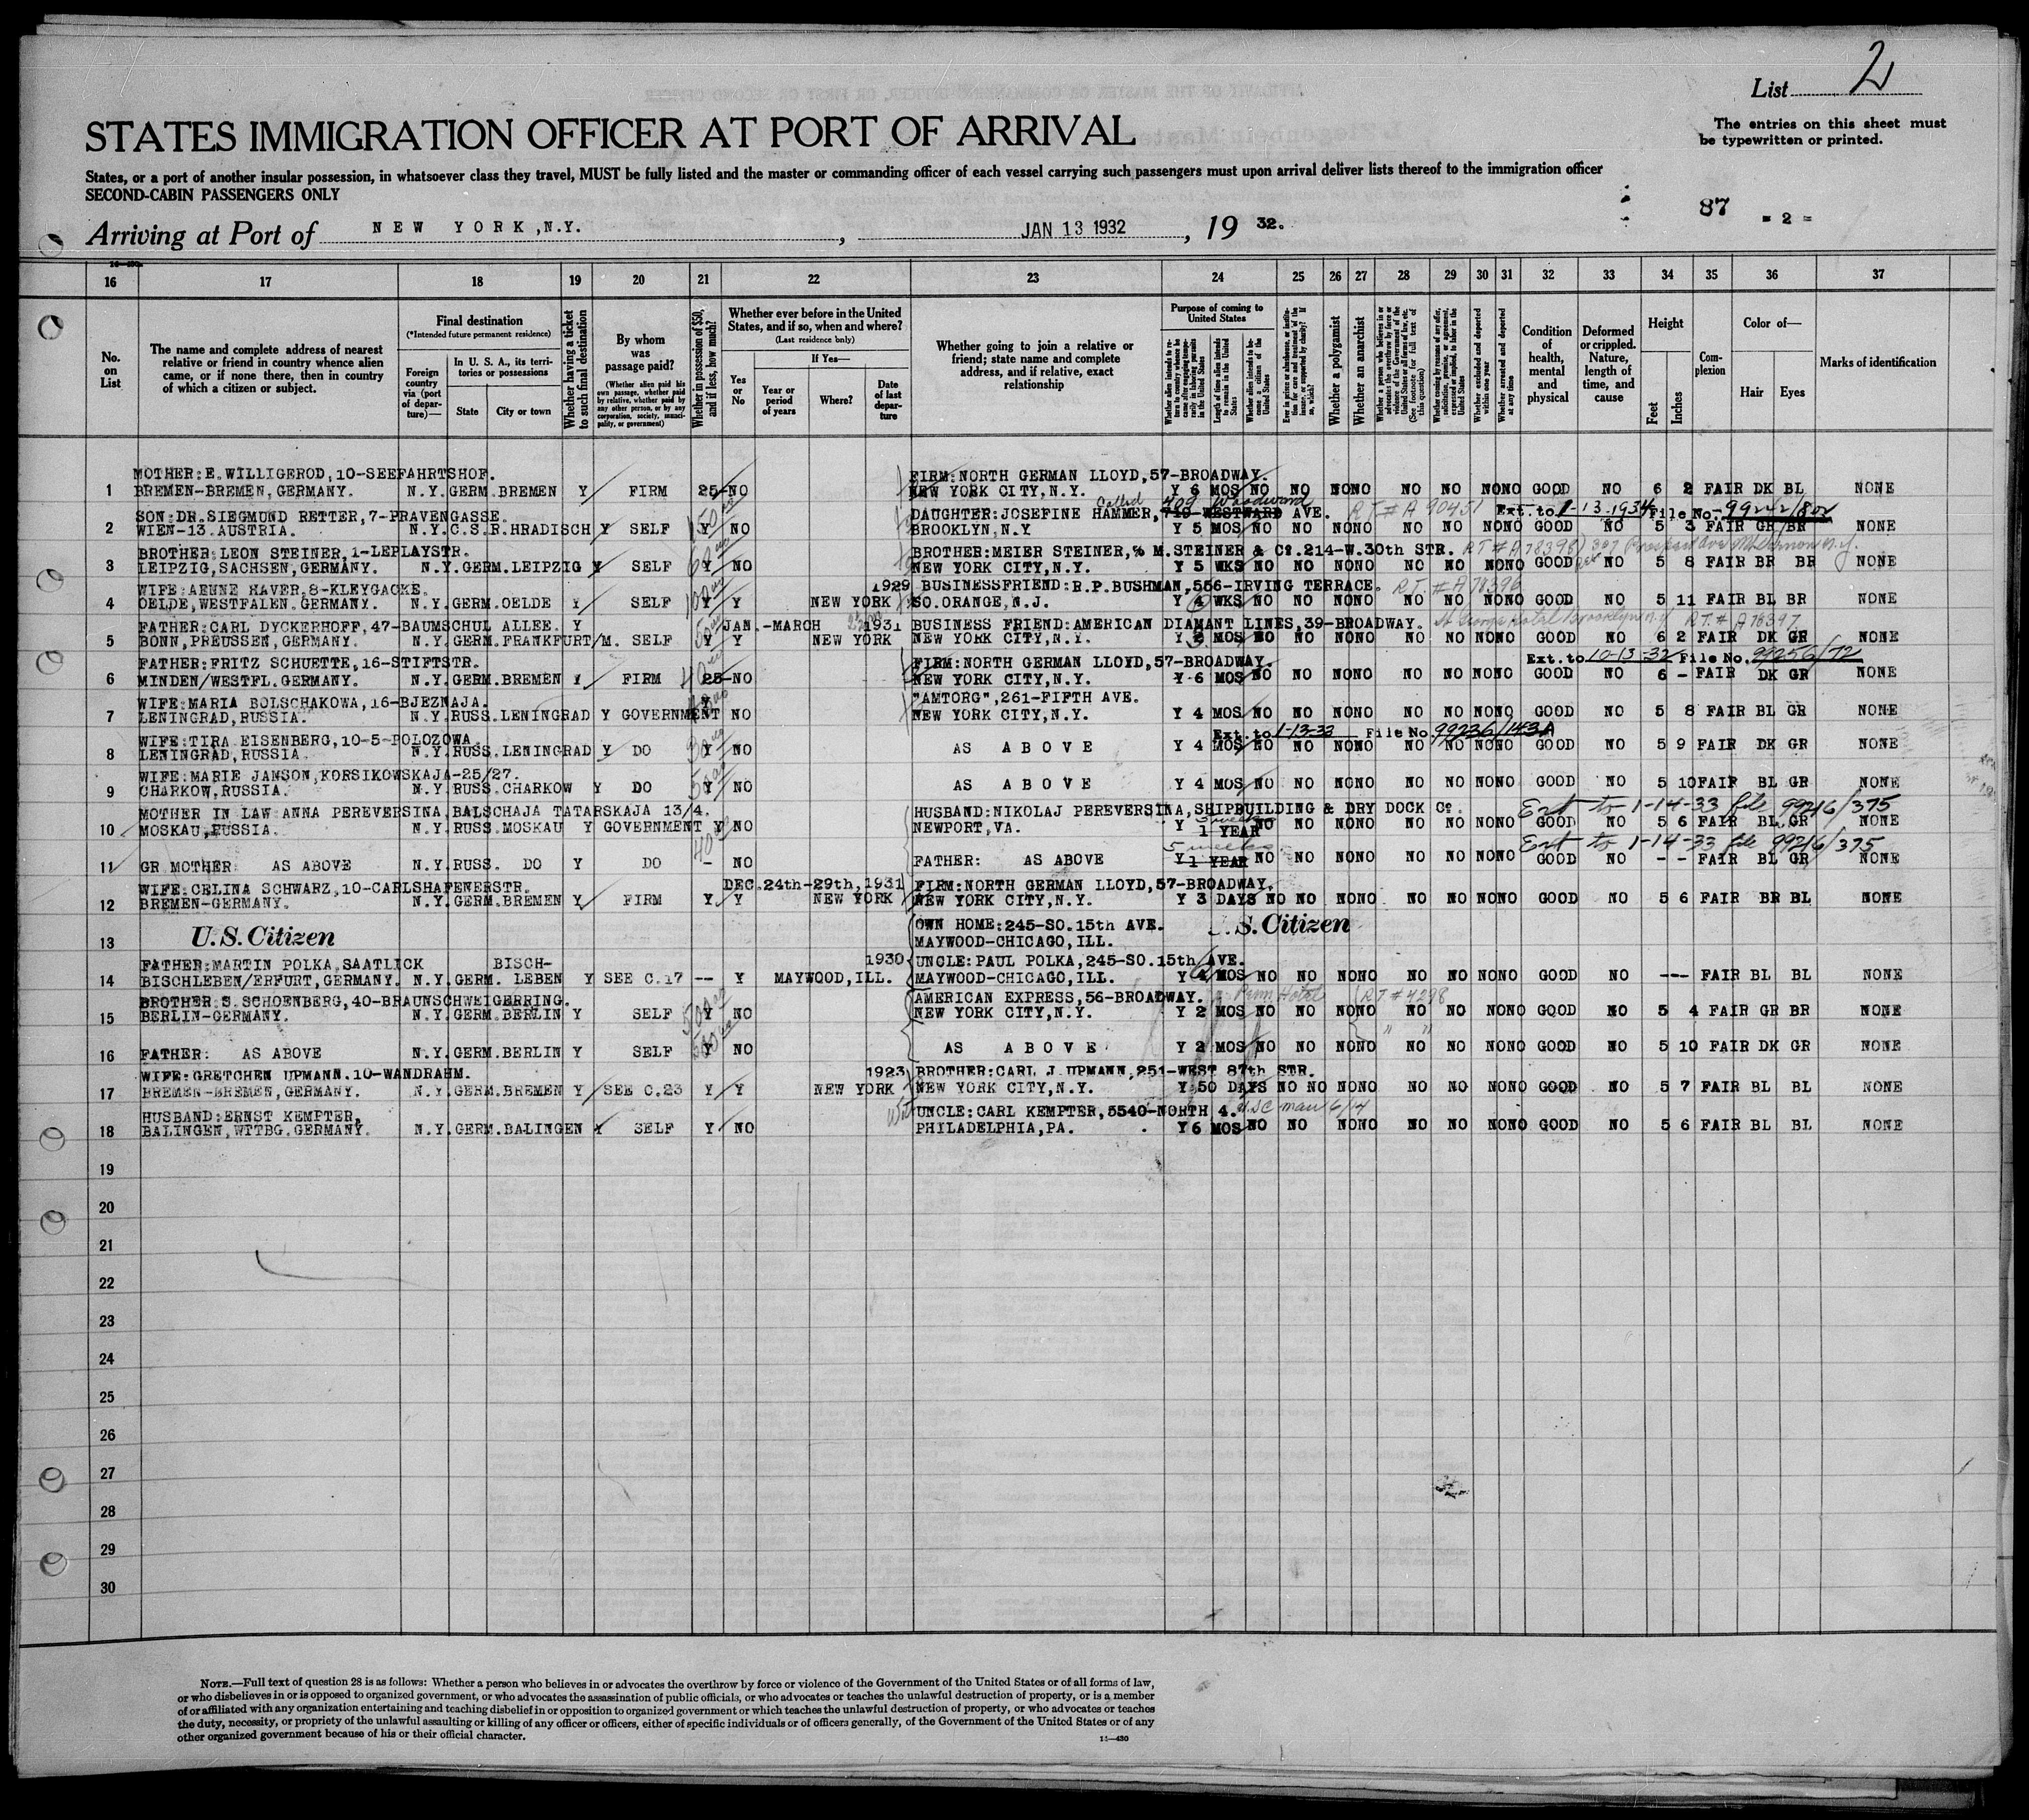 List 2
The entries on this sheet must
be typewritten or printed.
STATES IMMIGRATION OFFICER AT PORT OF ARRIVAL
States, or a port of another insular possession, in whatsoever class they travel, MUST be fully listed and the master or commanding officer of each vessel carrying such passengers must upon arrival deliver lists thereof to the immigration officer
SECOND-CABIN PASSENGERS ONLY
87 - 2 -
Arriving at Port of NEW YORK, N.Y. , JAN 13 1932 , 19 32.
16 17 18 19 20 21 22 23 24 25 26 27 28 29 30 31 32 33 34 35 36 37
No. on List
The name and complete address of nearest relative or friend in country whence alien came, or if none there, then in country of which a citizen or subject.
Final destination
(*Intended future permanent residence)
Foreign country via (port of departure)—
In U. S. A., its territories or possessions
State
City or town
Whether having a ticket to such final destination
By whom was passage paid?
(Whether alien paid his own passage, whether paid by relative, whether paid by any other person, or by any corporation, society, municipality, or government)
Whether in possession of $50, and if less, how much?
Whether ever before in the United States, and if so, when and where?
(Last residence only)
Yes or No
If Yes—
Year or period of years
Where?
Date of last departure
Whether going to join a relative or friend; state name and complete address, and if relative, exact relationship
Purpose of coming to United States
Length of time alien intends to remain in the United States
Whether alien intends to become a citizen of the United States
Whether a polygamist
Whether an anarchist
(See footnote for full text of this question)
Whether excluded and deported within one year
Whether arrested and deported at any time
Condition of health, mental and physical
Deformed or crippled. Nature, length of time, and cause
Height
Feet
Inches
Complexion
Color of—
Hair
Eyes
Marks of identification
MOTHER: E. WILLIGEROD, 10-SEEFAHRTSHOF. FIRM: NORTH GERMAN LLOYD, 57-BROADWAY.
1 BREMEN-BREMEN, GERMANY. N.Y. GERM. BREMEN Y FIRM 25 NO NEW YORK CITY, N.Y. Y 6 MOS NO NO NONO NO NO NONO GOOD NO 6 2 FAIR DK BL NONE
SON: DR. SIEGMUND RETTER, 7-PRAVENGASSE. DAUGHTER: JOSEFINE HAMMER, 719-WESTWARD AVE. Woodward RT # A 90451 Ext. to 1-13-1934 File No.
2 WIEN-13. AUSTRIA. N.Y. C.S.R. HRADISCH Y SELF Y NO BROOKLYN, N.Y Y 5 MOS NO NO NONO NO NO NONO GOOD NO 5 3 FAIR GR BR NONE
BROTHER: LEON STEINER, 1-LEPLAYSTR. BROTHER: MEIER STEINER, % M. STEINER & Co. 214-W. 30th STR. RT # A 78398
3 LEIPZIG, SACHSEN, GERMANY. N.Y. GERM. LEIPZIG Y SELF Y NO NEW YORK CITY, N.Y. Y 5 WKS NO NO NONO NO NO NONO GOOD NO 5 8 FAIR BR BR NONE
WIFE: AENNE HAVER, 8-KLEYGACKE. 1929 BUSINESSFRIEND: R.P. BUSHMAN, 556-IRVING TERRACE. RT. # A 78396
4 OELDE, WESTFALEN, GERMANY. N.Y. GERM. OELDE Y SELF Y Y NEW YORK SO. ORANGE, N.J. Y 4 WKS NO NO NONO NO NO NONO GOOD NO 5 11 FAIR BL BR NONE
FATHER: CARL DYCKERHOFF, 47-BAUMSCHUL ALLEE. Y JAN.-MARCH 1931 BUSINESS FRIEND: AMERICAN DIAMANT LINES, 39-BROADWAY. St George Hotel Brooklyn N.Y RT. # A 78397
5 BONN, PREUSSEN, GERMANY. N.Y. GERM. FRANKFURT/M. SELF Y Y NEW YORK NEW YORK CITY, N.Y. Y MOS NO NO NONO NO NO NONO GOOD NO 6 2 FAIR DK GR NONE
FATHER: FRITZ SCHUETTE, 16-STIFTSTR. FIRM: NORTH GERMAN LLOYD, 57-BROADWAY. Ext. to 10-13-32 File No. 99256/72
6 MINDEN/WESTFL. GERMANY. N.Y. GERM. BREMEN Y FIRM 25 NO NEW YORK CITY, N.Y. Y 6 MOS NO NO NONO NO NO NONO GOOD NO 6 - FAIR DK GR NONE
WIFE: MARIA BOLSCHAKOWA, 16-BJEZNAJA. "AMTORG", 261-FIFTH AVE.
7 LENINGRAD, RUSSIA. N.Y. RUSS. LENINGRAD Y GOVERNMENT Y NO NEW YORK CITY, N.Y. Y 4 MOS NO NO NONO NO NO NONO GOOD NO 5 8 FAIR BL GR NONE
WIFE: TIRA EISENBERG, 10-5-POLOZOWA. Ext. to 1-13-33 File No. 99236/143A
8 LENINGRAD, RUSSIA. N.Y. RUSS. LENINGRAD Y DO Y NO AS ABOVE Y 4 MOS NO NO NONO NO NO NONO GOOD NO 5 9 FAIR DK GR NONE
WIFE: MARIE JANSON, KORSIKOWSKAJA-25/27.
9 CHARKOW, RUSSIA. N.Y. RUSS. CHARKOW Y DO Y NO AS ABOVE Y 4 MOS NO NO NONO NO NO NONO GOOD NO 5 10 FAIR BL GR NONE
MOTHER IN LAW ANNA PEREVERSINA, BALSCHAJA TATARSKAJA 13/4. HUSBAND: NIKOLAJ PEREVERSINA, SHIPBUILDING & DRY DOCK Co. Ext to 1-14-33 file 99216/375
10 MOSKAU, RUSSIA. N.Y. RUSS. MOSKAU Y GOVERNMENT Y NO NEWPORT, VA. Y 5 weeks 1 YEAR NO NO NONO NO NO NONO GOOD NO 5 6 FAIR BL GR NONE
5 weeks Ext to 1-14-33 file 99216/375
11 GR MOTHER: AS ABOVE N.Y. RUSS. DO Y DO - NO FATHER: AS ABOVE Y 1 YEAR NO NO NONO NO NO NONO GOOD NO - - FAIR BL GR NONE
WIFE: CELINA SCHWARZ, 10-CARLSHAFENERSTR. DEC. 24th-29th, 1931 FIRM: NORTH GERMAN LLOYD, 57-BROADWAY.
12 BREMEN-GERMANY. N.Y. GERM. BREMEN Y FIRM Y Y NEW YORK NEW YORK CITY, N.Y. Y 3 DAYS NO NO NONO NO NO NONO GOOD NO 5 6 FAIR BR BL NONE
OWN HOME: 245-SO. 15th AVE. U.S. Citizen
13 U.S. Citizen MAYWOOD-CHICAGO, ILL.
FATHER: MARTIN POLKA, SAATLICK BISCH- 1930 UNCLE: PAUL POLKA, 245-SO. 15th AVE.
14 BISCHLEBEN/ERFURT, GERMANY. N.Y. GERM. LEBEN Y SEE C.17 -- Y MAYWOOD, ILL. MAYWOOD-CHICAGO, ILL. Y MOS NO NO NONO NO NO NONO GOOD NO --- FAIR BL BL NONE
BROTHER S. SCHOENBERG, 40-BRAUNSCHWEIGERRING. AMERICAN EXPRESS, 56-BROADWAY. Penn Hotel RT # 4298
15 BERLIN-GERMANY. N.Y. GERM. BERLIN Y SELF Y NO NEW YORK CITY, N.Y. Y 2 MOS NO NO NONO NO NO NONO GOOD NO 5 4 FAIR GR BR NONE
" "
16 FATHER: AS ABOVE N.Y. GERM. BERLIN Y SELF Y NO AS ABOVE Y 2 MOS NO NO NONO NO NO NONO GOOD NO 5 10 FAIR DK GR NONE
WIFE: GRETCHEN UPMANN. 10-WANDRAHM. 1923 BROTHER: CARL J. UPMANN, 251-WEST 87th STR.
17 BREMEN-BREMEN, GERMANY. N.Y. GERM. BREMEN Y SEE C.23 Y Y NEW YORK NEW YORK CITY, N.Y. Y 50 DAYS NO NO NONO NO NO NONO GOOD NO 5 7 FAIR BL BL NONE
HUSBAND: ERNST KEMPTER, UNCLE: CARL KEMPTER, 5540-NORTH 4.
18 BALINGEN, WTTBG. GERMANY. N.Y. GERM. BALINGEN Y SELF Y NO PHILADELPHIA, PA. Y 6 MOS NO NO NONO NO NO NONO GOOD NO 5 6 FAIR BL BL NONE
19
20
21
22
23
24
25
26
27
28
29
30
NOTE.—Full text of question 28 is as follows: Whether a person who believes in or advocates the overthrow by force or violence of the Government of the United States or of all forms of law,
or who disbelieves in or is opposed to organized government, or who advocates the assassination of public officials, or who advocates or teaches the unlawful destruction of property, or is a member
of or affiliated with any organization entertaining and teaching disbelief in or opposition to organized government or which teaches the unlawful destruction of property, or who advocates or teaches
the duty, necessity, or propriety of the unlawful assaulting or killing of any officer or officers, either of specific individuals or of officers generally, of the Government of the United States or of any
other organized government because of his or their official character.
14—430